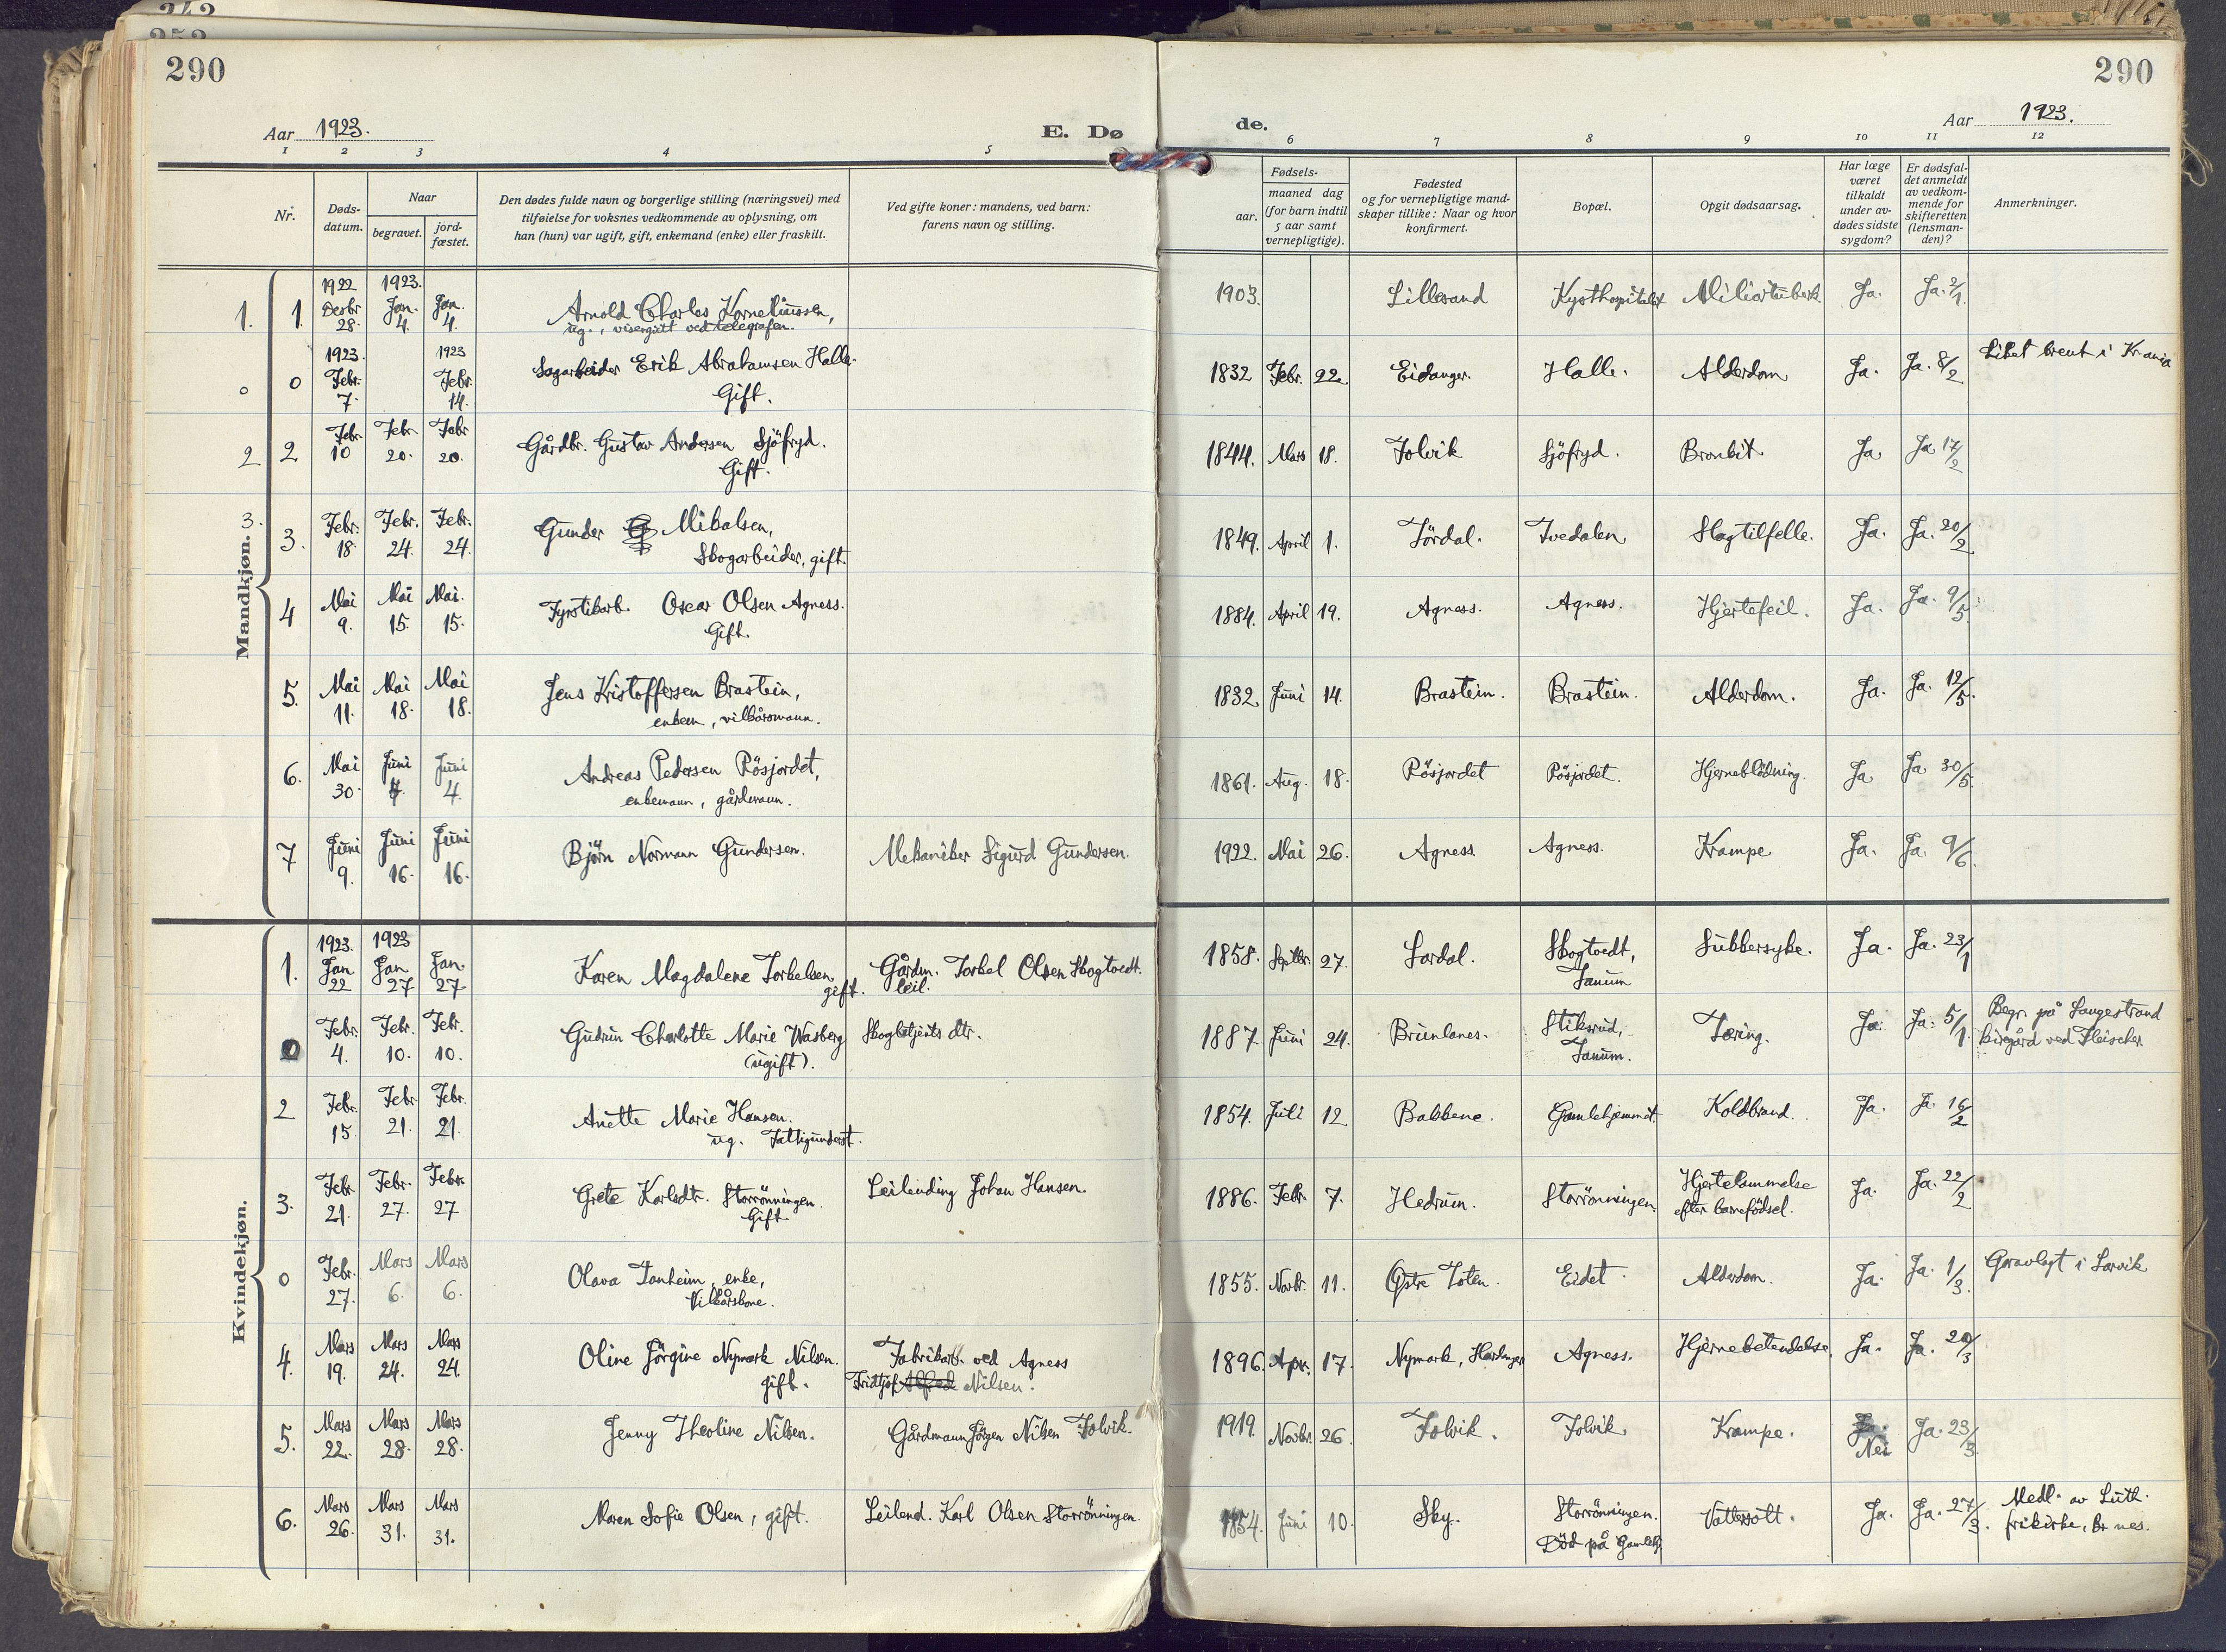 242
252
290
290
Aar 1923.
E. Dø
de.
Aar 1923.
1 2 3 4 5
6 7 8 9 10 11 12
Nr.
Døds-
datum.
Naar
begravet.
jord-
fæstet.
Den dødes fulde navn og borgerlige stilling (næringsvei) med
tilføielse for voksnes vedkommende av oplysning, om
han (hun) var ugift, gift, enkemand (enke) eller fraskilt.
Ved gifte koner: mandens, ved barn:
farens navn og stilling.
Fødsels-
aar.
maaned dag
(for barn indtil
5 aar samt
vernepligtige).
Fødested
og for vernepligtige mand-
skaper tillike: Naar og hvor
konfirmert.
Bopæl.
Opgit dødsaarsag.
Har læge
været
tilkaldt
under av-
dødes sidste
sygdom?
Er dødsfal-
det anmeldt
av vedkom-
mende for
skifteretten
(lensman-
den)?
Anmerkninger.
Mandkjøn.
1. 1. 1922 Desbr 28. 1923. Jan. 4. Jan. 4. Arnold Charles Korneliussen,
ug., visergutt ved telegrafen.
1903. Lillesand Kysthospitalet Miliærtuberk. Ja. Ja. 2/1.
0 0 1923. Febr. 7. 1923 Febr. 14. Sagarbeider Erik Abrahamsen Halle.
Gift.
1832 Febr. 22. Eidanger. Halle. Alderdom Ja. Ja. 8/2 Liket brent i Krania
2 2 Febr. 10 Febr. 20. Febr 20. Gårdbr. Gustav Andersen Sjöfryd.
Gift.
1844. Mars 18. Folvik Sjöfryd. Bronkit. Ja Ja 17/2
3. 3. Febr. 18. Febr. 24. Febr. 24. Gunder Mikalsen,
Skogarbeider, gift.
1849. April 1. Tördal. Tvedalen Slagtilfelle. Ja. Ja. 20/2
4 Mai 9. Mai 15. Mai. 15. Fyrstikarb. Oscar Olsen Agness.
Gift.
1884. April 19. Agness. Agness. Hjertefeil. Ja. Ja. 9/5.
5. Mai 11. Mai 18. Mai 18. Jens Kristoffersen Brastein,
enkem, vilkårsmann.
1832 Juni 14. Brastein. Brastein. Alderdom. Ja. Ja. 12/5.
6. Mai 30. Juni 4. Juni 4. Andreas Pedersen Rösjordet,
enkemann, gårdmann.
1861. Aug. 18. Rösjordet Rösjordet. Hjerneblödning. Ja Ja 30/5.
7 Juni 9. Juni 16. Juni 16. Björn Normann Gundersen. Mekaniker Sigurd Gundersen.
1922. Mai 26. Agness Agness. Krampe Ja. Ja. 9/6.
Kvindekjøn.
1. 1923. Jan 22 1923 Jan 27 Jan. 27 Karen Magdalene Torkelsen.
gift.
Gårdm. Torkel Olsen Skogtvedt.
leil.
1858. Septbr. 27. Lardal. Skogtvedt,
Tanum
Sukkersyke. Ja. Ja. 23/1
0 Febr. 4. Febr. 10. Febr. 10. Gudrun Charlotte Marie Wasberg
(ugift).
Skogbetjents dtr.
1887 Juni 24. Brunlanes. Stiksrud,
Tanum.
Tæring. Ja. Ja. 5/1. Begr. på Langestrand
kirkegård ved Fleischer
2 Febr. 15. Febr. 21. Febr. 21. Anette Marie Hansen.
ug. Fattigunderst.
1854. Juli 12 Bakkene. Gamlehjemmet. Koldbrand. Ja. Ja 16/2
3. Febr 21. Febr. 27. Febr. 27 Grete Karlsdtr. Storrönningen.
Gift.
Leilending Johan Hansen.
1886. Febr. 7. Hedrum. Storrönningen. Hjertelammelse
efter barnefödsel.
Ja. Ja. 22/2
0 Febr. 27. Mars 6. Mars 6. Olava Tanheim, enke,
Vilkårskone.
1855. Novbr. 11. Östre Toten. Eidet. Alderdom. Ja. Ja. 1/3. Gravlagt i Larvik
4. Mars 19. Mars 24. Mars 24. Oline Jörgine Nymark Nilsen.
gift.
Fabrikarb. ved Agness
Fridtjof Alfred Nilsen.
1896. Apr. 17. Nymark, Hardanger Agness. Hjernebetendelse. Ja. Ja. 20/3
5. Mars 22. Mars 28. Mars 28. Jenny Theoline Nilsen. Gårdmann Jörgen Nilsen Folvik.
1919. Novbr. 26. Folvik. Folvik. Krampe. Ja.
Nei
Ja. 23/3
6. Mars 26. Mars 31. Mars 31. Maren Sofie Olsen, gift. Leilend. Karl Olsen Storrönningen
1854. Juni 10. Sky. Storrönningen.
Död på Gamleh.
Vattersott. Ja. Ja. 27/3. Medl. av Luth.
frikirke, Br.nes.